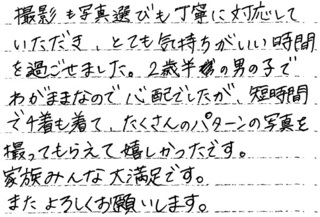 撮影も写真選びも丁寧に対応して
いただき、とても気持ちがいい時間
を過ごせました。2歳半の男の子で
わがままなので心配でしたが、短時間
で4着も着て、たくさんのパターンの写真を
撮ってもらえて嬉しかったです。
家族みんな大満足です。
またよろしくお願いします。